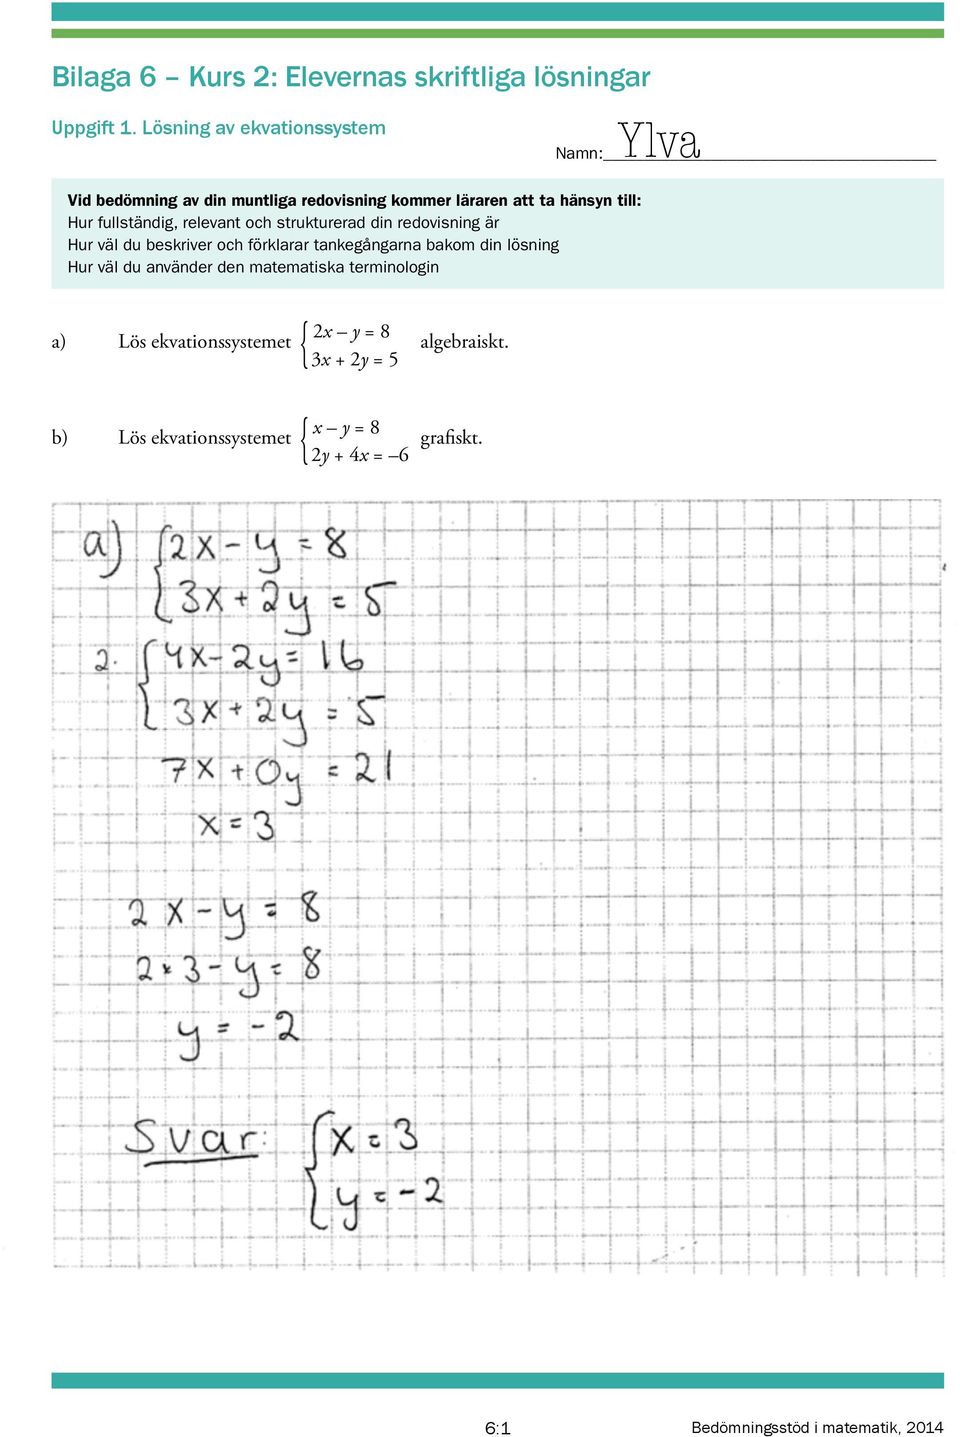 Bilaga 6 – Kurs 2: Elevernas skriftliga lösningar
Uppgift 1. Lösning av ekvationssystem
Namn: Ylva
Vid bedömning av din muntliga redovisning kommer läraren att ta hänsyn till:
Hur fullständig, relevant och strukturerad din redovisning är
Hur väl du beskriver och förklarar tankegångarna bakom din lösning
Hur väl du använder den matematiska terminologin
a) Lös ekvationssystemet { 2x – y = 8
3x + 2y = 5 algebraiskt.
b) Lös ekvationssystemet { x – y = 8
2y + 4x = –6 grafiskt.
a) { 2x - y = 8
3x + 2y = 5
2. { 4x - 2y = 16
3x + 2y = 5
7x + 0y = 21
x = 3
2x - y = 8
2 * 3 - y = 8
y = -2
Svar: { x = 3
y = -2
6:1 Bedömningsstöd i matematik, 2014